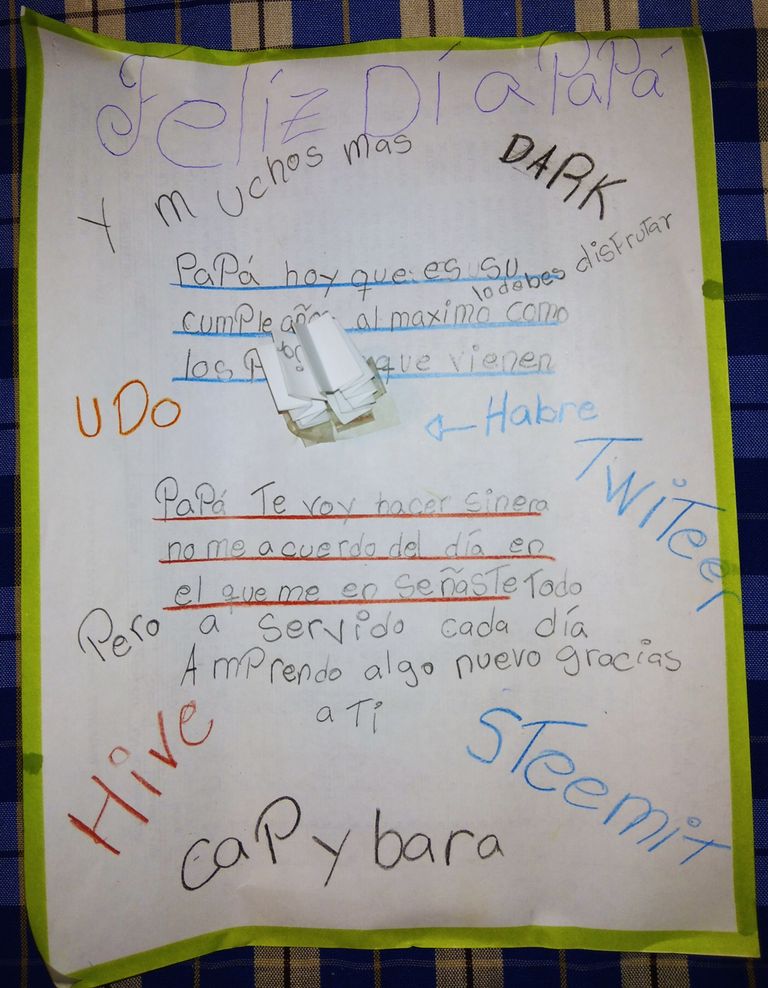 Felíz Día PaPá
Y muchos mas
DARK
PaPá hoy que es su
cumpleaños al maximo como
lo debes disfrutar
los que vienen
UDo
Habre
TWiTeer
PaPá Te voy hacer sinera
no me acuerdo del día en
el que me en SeñaSTe Todo
Pero a servido cada día
AmPrendo algo nuevo gracias
a Ti
Hive
STeemiT
caPybara